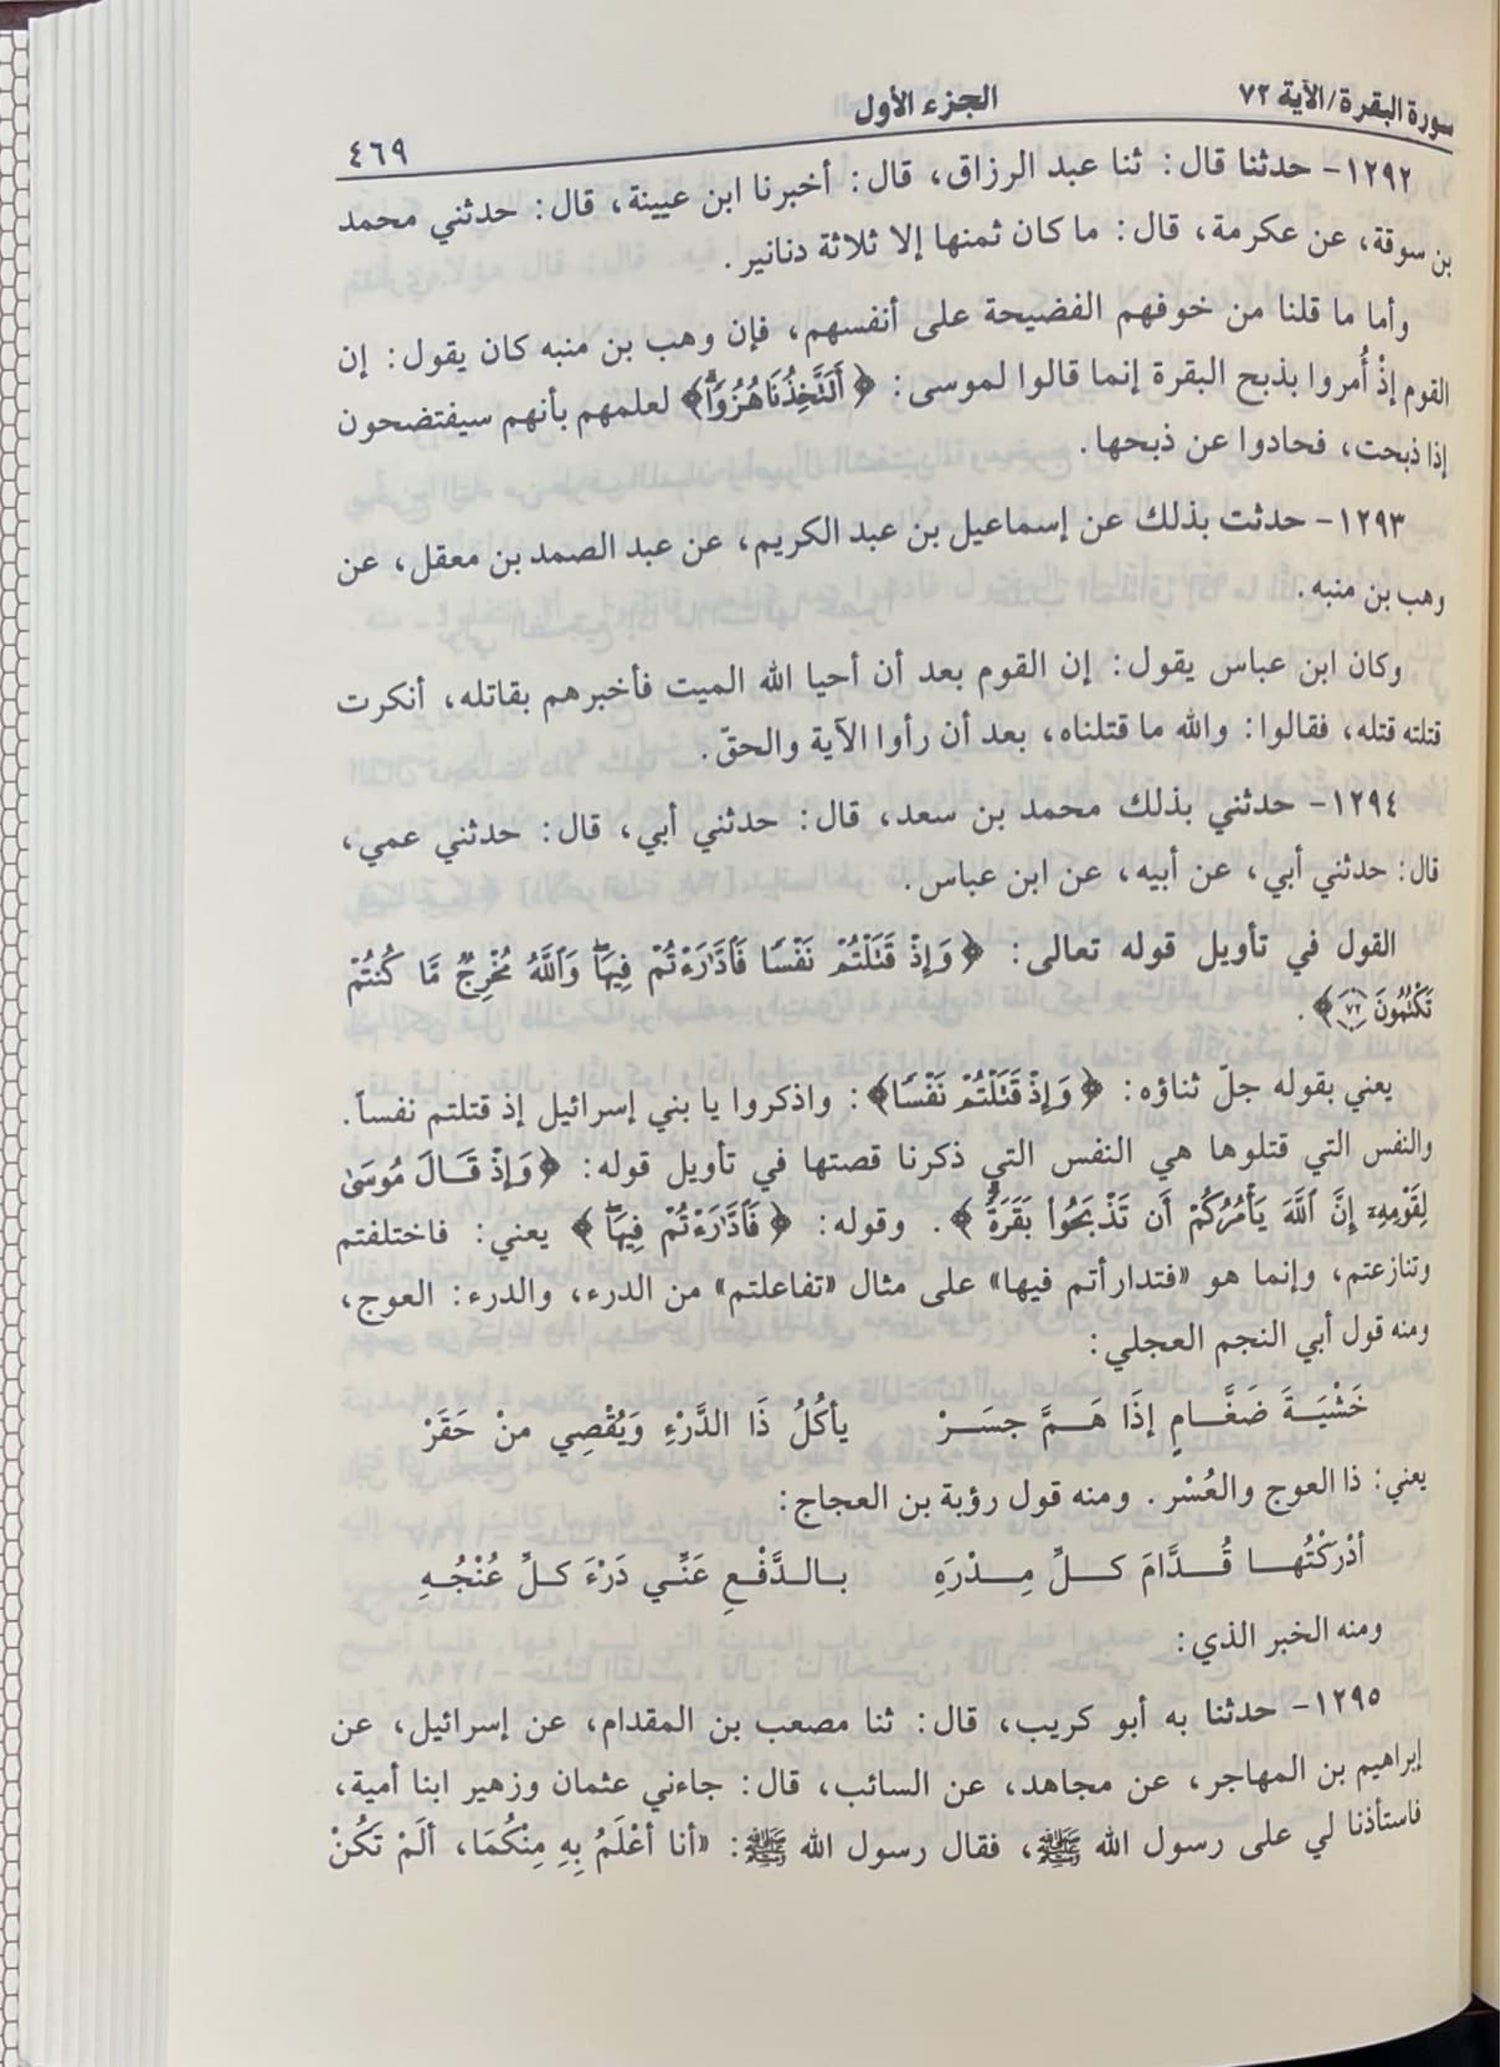 سورة البقرة/الآية ٧٢
الجزء الأول
٤٦٩
١٢٩٢- حدثنا قال: ثنا عبد الرزاق، قال: أخبرنا ابن عيينة، قال: حدثني محمد
بن سوقة، عن عكرمة، قال: ما كان ثمنها إلا ثلاثة دنانير.
وأما ما قلنا من خوفهم الفضيحة على أنفسهم، فإن وهب بن منبه كان يقول: إن
القوم إذْ أُمروا بذبح البقرة إنما قالوا لموسى: ﴿أَتَتَّخِذُنَا هُزُوٗاۖ﴾ لعلمهم بأنهم سيفتضحون
إذا ذبحت، فحادوا عن ذبحها.
١٢٩٣- حدثت بذلك عن إسماعيل بن عبد الكريم، عن عبد الصمد بن معقل، عن
وهب بن منبه.
وكان ابن عباس يقول: إن القوم بعد أن أحيا الله الميت فأخبرهم بقاتله، أنكرت
قتلته قتله، فقالوا: والله ما قتلناه، بعد أن رأوا الآية والحقّ.
١٢٩٤- حدثني بذلك محمد بن سعد، قال: حدثني أبي، قال: حدثني عمي،
قال: حدثني أبي، عن أبيه، عن ابن عباس.
القول في تأويل قوله تعالى: ﴿وَإِذْ قَتَلْتُمْ نَفْسًا فَٱدَّٰرَٰٔتُمْ فِيهَاۖ وَٱللَّهُ مُخْرِجٌ مَّا كُنتُمْ
تَكْتُمُونَ ٧٢﴾.
يعني بقوله جلّ ثناؤه: ﴿وَإِذْ قَتَلْتُمْ نَفْسًا﴾: واذكروا يا بني إسرائيل إذ قتلتم نفساً.
والنفس التي قتلوها هي النفس التي ذكرنا قصتها في تأويل قوله: ﴿وَإِذْ قَالَ مُوسَىٰ
لِقَوْمِهِۦٓ إِنَّ ٱللَّهَ يَأْمُرُكُمْ أَن تَذْبَحُوا۟ بَقَرَةًۖ﴾. وقوله: ﴿فَٱدَّٰرَٰٔتُمْ فِيهَاۖ﴾ يعني: فاختلفتم
وتنازعتم، وإنما هو «فتدارأتم فيها» على مثال «تفاعلتم» من الدرء، والدرء: العوج،
ومنه قول أبي النجم العجلي:
خَشْيَةَ ضَغَّامٍ إذَا هَمَّ جسَرْ يأكُلُ ذَا الدَّرْءِ وَيُقْصِي منْ حَقَرْ
يعني: ذا العوج والعُسْر. ومنه قول رؤبة بن العجاج:
أدْرَكْتُها قُدَّامَ كلِّ مِدْرَهِ بالدَّفْعِ عَنِّي دَرْءَ كلِّ عُنْجُهِ
ومنه الخبر الذي:
١٢٩٥- حدثنا به أبو كريب، قال: ثنا مصعب بن المقدام، عن إسرائيل، عن
إبراهيم بن المهاجر، عن مجاهد، عن السائب، قال: جاءني عثمان وزهير ابنا أمية،
فاستأذنا لي على رسول الله ﷺ، فقال رسول الله ﷺ: «أنا أعْلَمُ بِهِ مِنْكُمَا، ألَمْ تَكُنْ